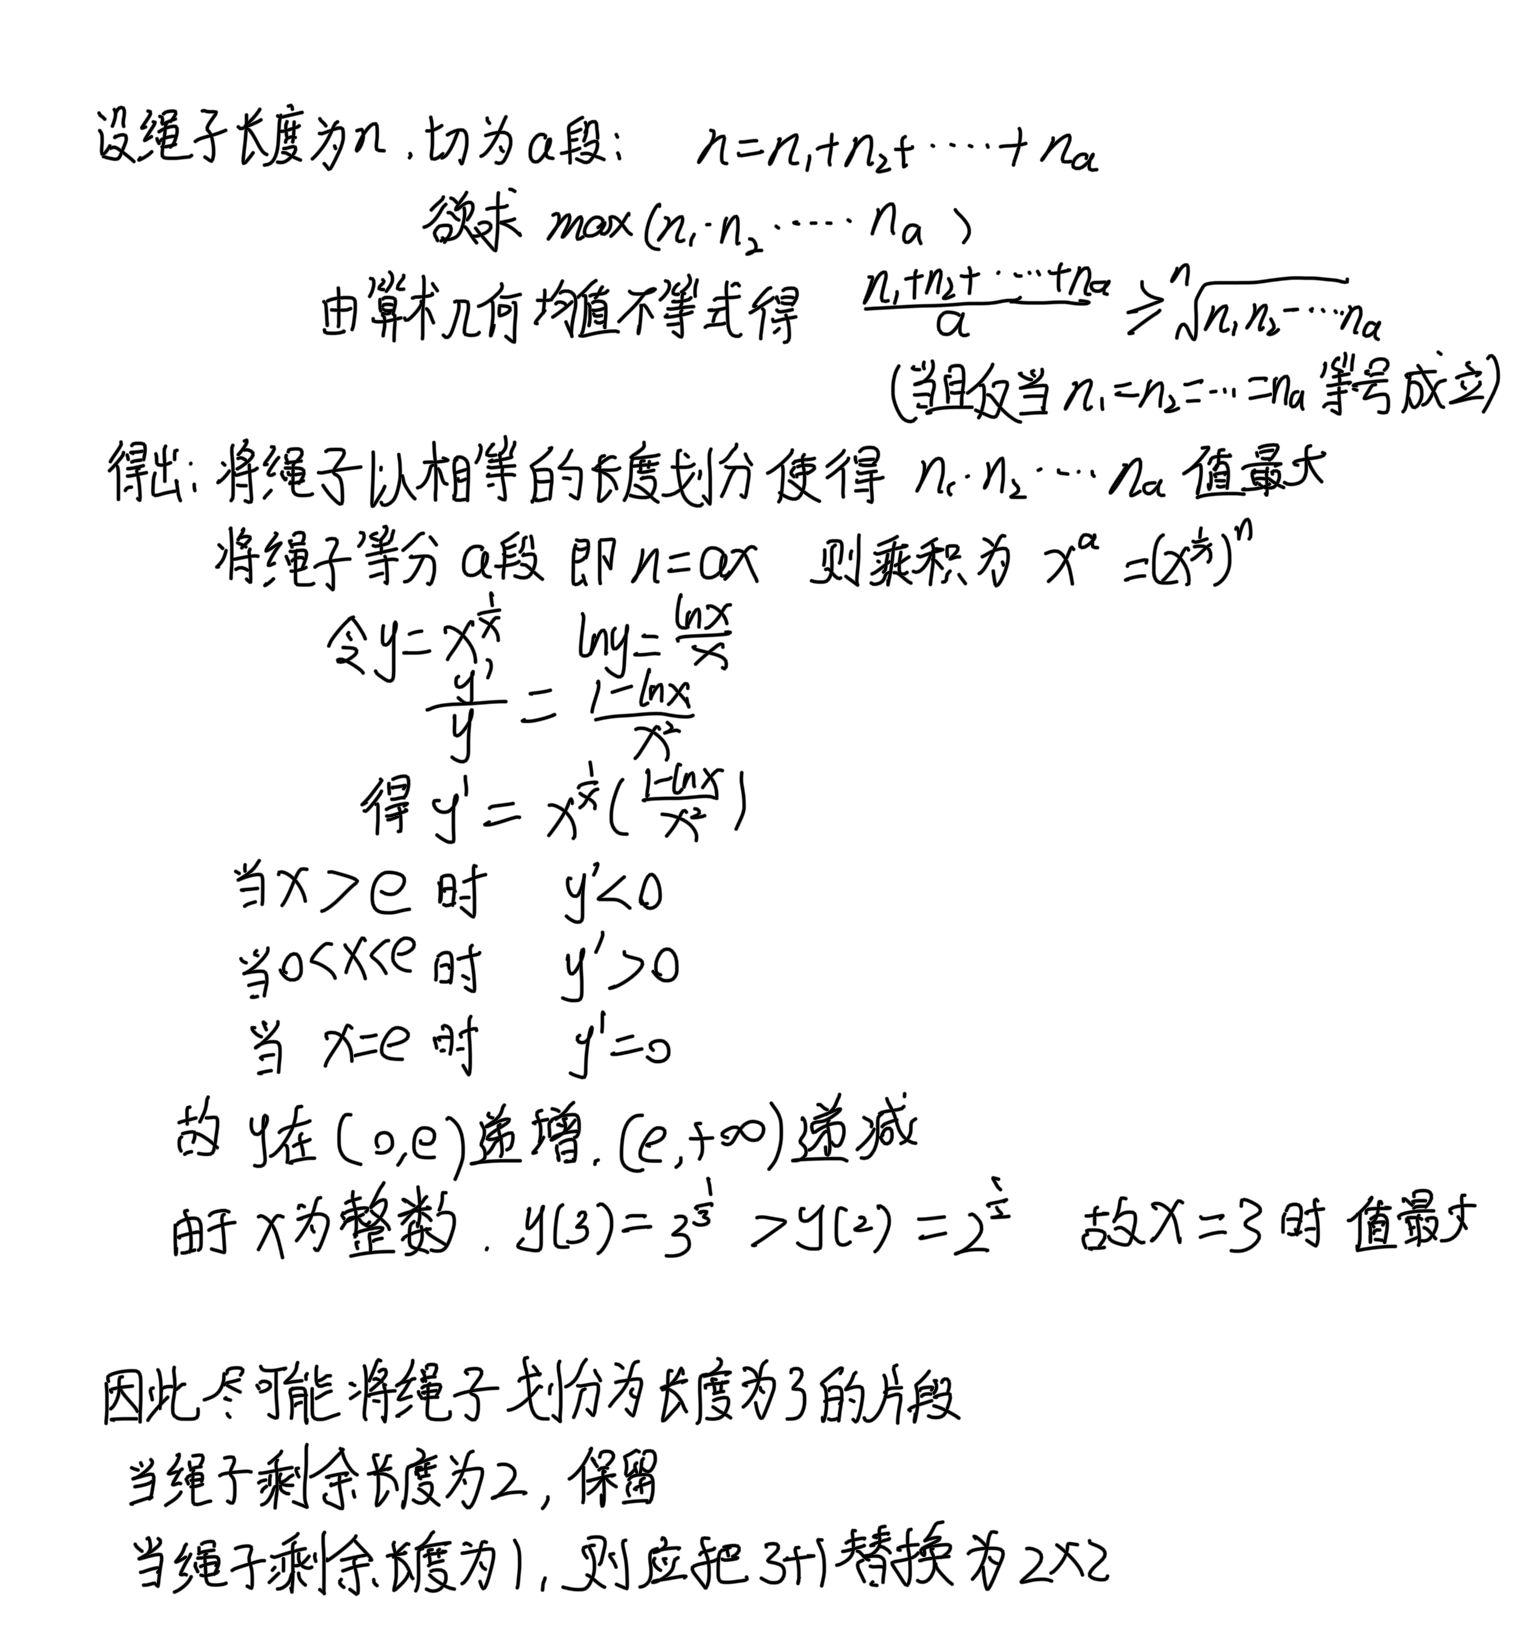 设绳子长度为n,切为a段: n=n₁+n₂+·····+nₐ
欲求 max(n₁·n₂·····nₐ)
由算术几何均值不等式得 (n₁+n₂+·····+nₐ)/a ≥ ⁿ√(n₁n₂·····nₐ)
(当且仅当 n₁=n₂=···=nₐ 等号成立)
得出: 将绳子以相等的长度划分使得 n₁·n₂····nₐ 值最大
将绳子等分a段 即 n=ax 则乘积为 x^a =(x^(1/x))^n
令y=x^(1/x) lny=lnx/x
y'/y = (1-lnx)/x²
得 y' = x^(1/x)((1-lnx)/x²)
当x>e时 y'<0
当0<x<e时 y'>0
当 x=e时 y'=0
故 y在(0,e)递增,(e,+∞)递减
由于x为整数. y(3)=3^(1/3) >y(2)=2^(1/2) 故x=3时 值最大
因此尽可能将绳子划分为长度为3的片段
当绳子剩余长度为2,保留
当绳子剩余长度为1,则应把3+1替换为2×2